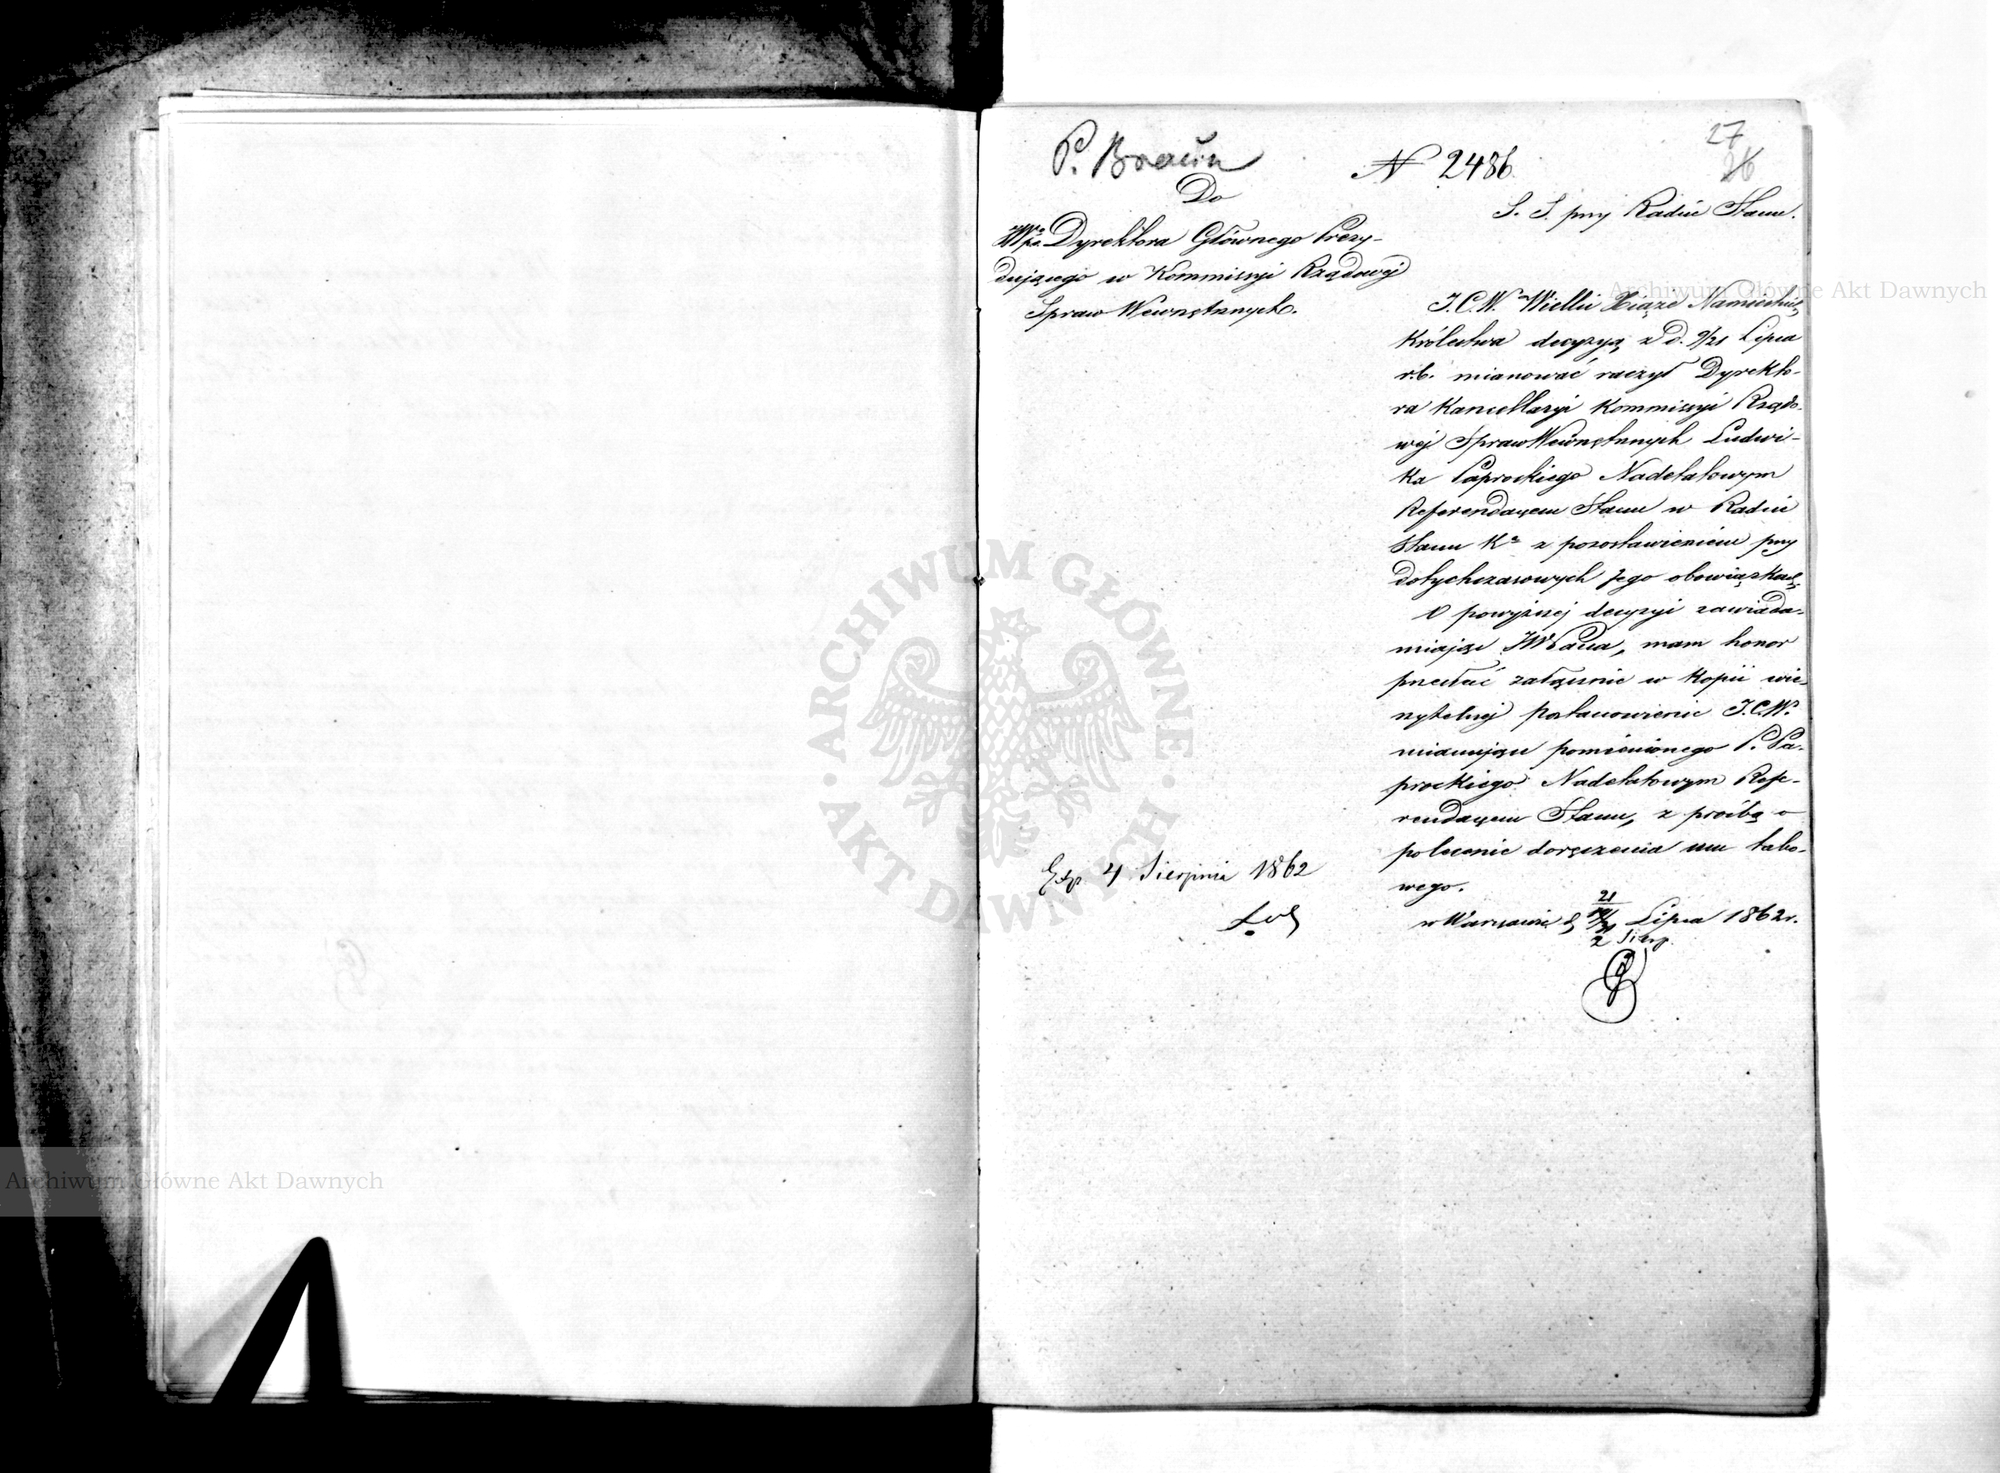 27
26
P. Braün
N 2486.
Do
JWgo Dyrektora Głównego Prezy-
dującego w Kommissyi Rządowej
Spraw Wewnętrznych.
S. S. przy Radzie Stanu.
J.C.W. Wielki Xiąże Namiestnik
Królestwa decyzyą z d. 9/21 Lipca
r.b. mianować raczył Dyrekto-
ra Kancellaryi Kommissyi Rządo-
wej Spraw Wewnętrznych Ludwi-
ka Paprockiego Nadetatowym
Referendarzem Stanu w Radzie
Stanu Ka z pozostawieniem przy
dotychczasowych Jego obowiązkach.
O powyższej decyzyi zawiada-
miając JWPana, mam honor
przesłać załącznie w kopii wie-
rzytelnej postanowienie J.C.W.
mianujące pomienionego P. Pa-
prockiego Nadetatowym Refe-
rendarzem Stanu, z prośbą o
polecenie doręczenia mu tako-
wego.
w Warszawie d. 21 Lipca 1862 r.
2 Sierp.
Exp. 4 Sierpnia 1862
Archiwum Główne Akt Dawnych
Archiwum Główne Akt Dawnych
ARCHIWUM GŁÓWNE
AKT DAWNYCH